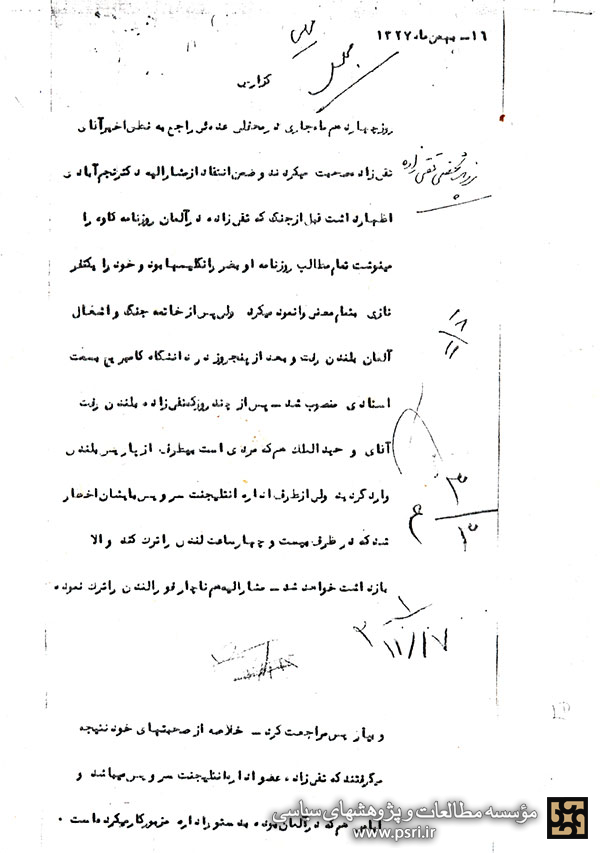 ۱۶ـ بهمن ماه ۱۳۲۷
مجلس
گزارش
روز چهاردهم ماه جاری در محفلی عده‌ئی راجع به نطق اخیر آقای
تقی زاده صحبت میکردند و ضمن انتقاد از مشارالیه دکتر نجم آبادی
پرونده شخصی تقی زاده
اظهار داشت قبل از جنگ که تقی زاده در آلمان روزنامه کاوه را
مینوشت تمام مطالب روزنامه او بضرر انگلیسها بود و خود را یکنفر
نازی بتمام معنی وانمود میکرد ولی پس از خاتمه جنگ و اشغال
۱۸/۱۱
آلمان بلندن رفت و بعد از پنجروز در دانشگاه کامبریج بسمت
استادی منصوب شد ـ پس از چند روز که تقی زاده بلندن رفت
آقای وحیدالملک هم که مردی است بیطرف از پاریس بلندن
وارد گردید ولی از طرف اداره انتلیجنت سرویس بایشان اخطار
شد که در ظرف بیست و چهار ساعت لندن را ترک کند و الا
بازداشت خواهد شد ـ مشارالیه هم ناچار فورا لندن را ترک نموده
۱۱/۱۷
و بپاریس مراجعت کرد ـ خلاصه از صحبتهای خود نتیجه
میگرفتند که تقی زاده عضو اداره انتلیجنت سرویس میباشد و
ایامی هم که در آلمان بوده بدستور اداره مزبور کار میکرده است .
مؤسسه مطالعات و پژوهشهای سیاسی
www.psri.ir